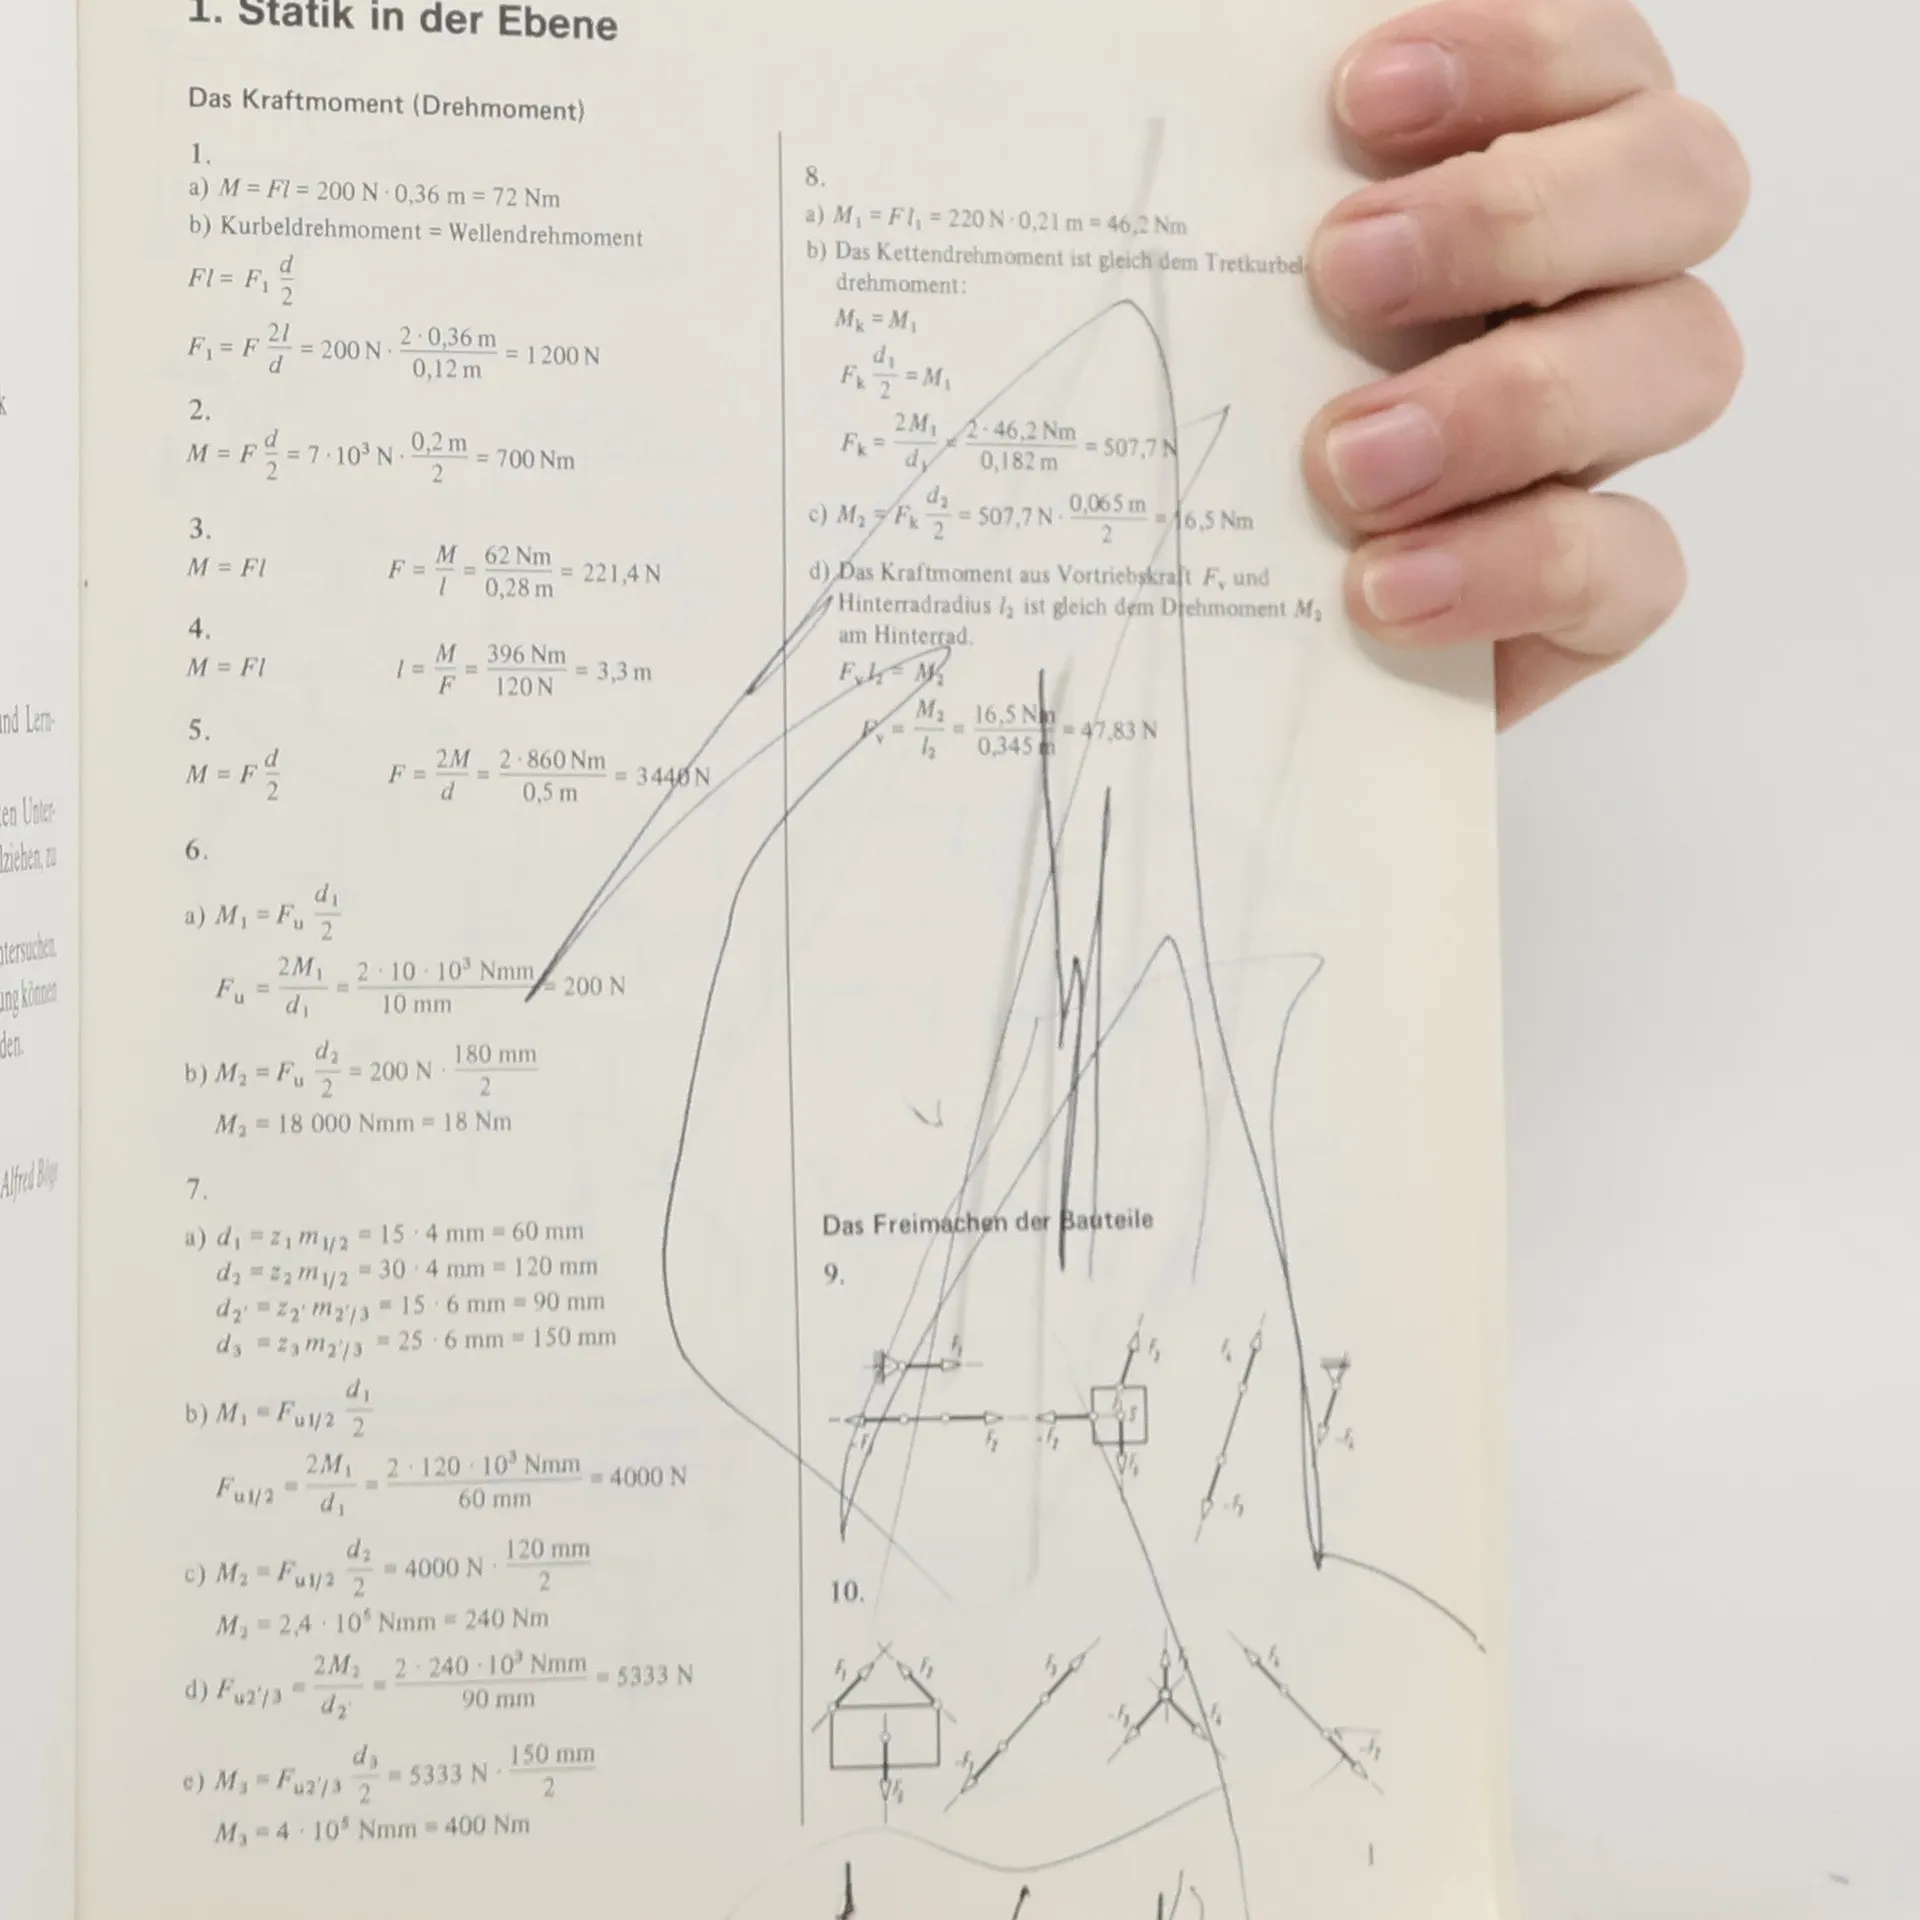 1. Statik in der Ebene
Das Kraftmoment (Drehmoment)
1.
a) M = Fl = 200 N · 0,36 m = 72 Nm
b) Kurbeldrehmoment = Wellendrehmoment
Fl = F₁ d/2
F₁ = F 2l/d = 200 N · 2 · 0,36 m/0,12 m = 1200 N
2.
M = F d/2 = 7 · 10³ N · 0,2 m/2 = 700 Nm
3.
M = Fl F = M/l = 62 Nm/0,28 m = 221,4 N
4.
M = Fl l = M/F = 396 Nm/120 N = 3,3 m
5.
M = F d/2 F = 2M/d = 2 · 860 Nm/0,5 m = 3440 N
6.
a) M₁ = Fᵤ d₁/2
Fᵤ = 2M₁/d₁ = 2 · 10 · 10³ Nmm/10 mm = 200 N
b) M₂ = Fᵤ d₂/2 = 200 N · 180 mm/2
M₂ = 18 000 Nmm = 18 Nm
7.
a) d₁ = z₁ m1/2 = 15 · 4 mm = 60 mm
d₂ = z₂ m1/2 = 30 · 4 mm = 120 mm
d2' = z2' m2'/3 = 15 · 6 mm = 90 mm
d₃ = z₃ m2'/3 = 25 · 6 mm = 150 mm
b) M₁ = Fu1/2 d₁/2
Fu1/2 = 2M₁/d₁ = 2 · 120 · 10³ Nmm/60 mm = 4000 N
c) M₂ = Fu1/2 d₂/2 = 4000 N · 120 mm/2
M₂ = 2,4 · 10⁵ Nmm = 240 Nm
d) Fu2'/3 = 2M₂/d2' = 2 · 240 · 10³ Nmm/90 mm = 5333 N
e) M₃ = Fu2'/3 d₃/2 = 5333 N · 150 mm/2
M₃ = 4 · 10⁵ Nmm = 400 Nm
8.
a) M₁ = Fl₁ = 220 N · 0,21 m = 46,2 Nm
b) Das Kettendrehmoment ist gleich dem Tretkurbel-
drehmoment:
Mₖ = M₁
Fₖ d₁/2 = M₁
Fₖ = 2M₁/d₁ = 2 · 46,2 Nm/0,182 m = 507,7 N
c) M₂ = Fₖ d₂/2 = 507,7 N · 0,065 m/2 = 16,5 Nm
d) Das Kraftmoment aus Vortriebskraft Fᵥ und
Hinterradradius l₂ ist gleich dem Drehmoment M₂
am Hinterrad.
Fᵥ l₂ = M₂
Fᵥ = M₂/l₂ = 16,5 Nm/0,345 m = 47,83 N
Das Freimachen der Bauteile
9.
F₁
F₃
S
F₂
10.
F₁ F₂
F₃
1
und Lern-
den.
Alfred